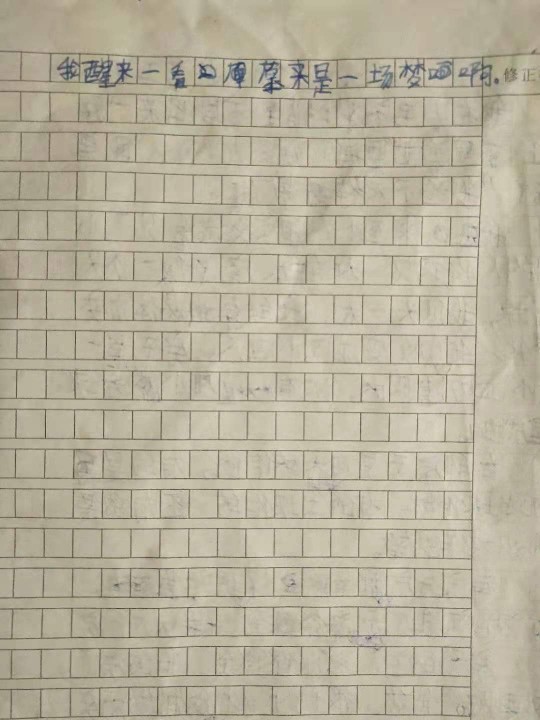 我醒来一看原来是一场梦啊。修正